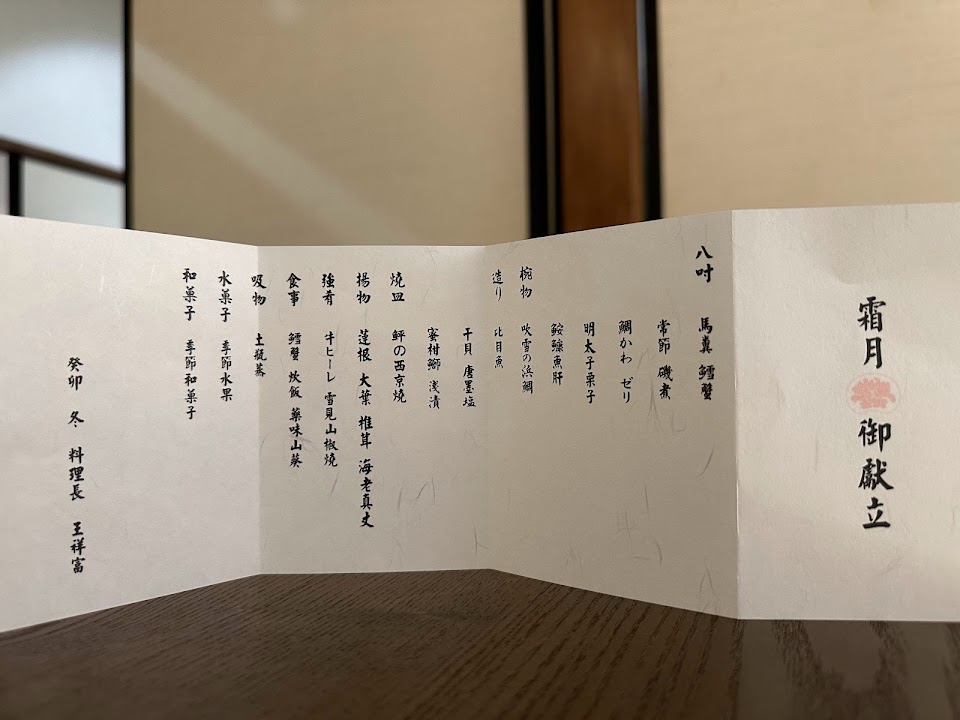 霜月 御献立
八吋 馬糞 鱈蟹
常節 磯煮
鯛かわ ゼリ
明太子栗子
鮟鱇魚肝
椀物 吹雪の浜鯛
造り 比目魚
干貝 唐墨塩
蜜柑鰤 浅漬
焼皿 鮃の西京焼
揚物 蓮根 大葉 椎茸 海老真丈
強肴 牛ヒーレ 雪見山椒焼
食事 鱈蟹 炊飯 薬味山葵
吸物 土瓶蒸
水菓子 季節水果
和菓子 季節和菓子
癸卯 冬 料理長 王祥富